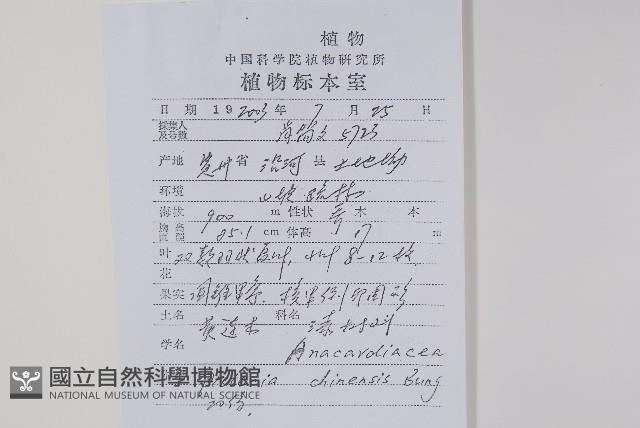 植物
中国科学院植物研究所
植物标本室
日 期 19 2003 年 7 月 25 日
採集人
及号数 简文 5723
产地 贵州 省 沿河 县 土地坳
环境 山坡 疏林
海拔 900 m 性状 乔 木 本
胸高
直径 25.1 cm 体高 17 m
叶 双数羽状复叶, 小叶 8-12 枚
花
果实 圆锥果序. 核果倒卵圆形
土名 黄连木 科名 漆树科
学名 Anacardiacea
chinensis Bung
國立自然科學博物館
NATIONAL MUSEUM OF NATURAL SCIENCE